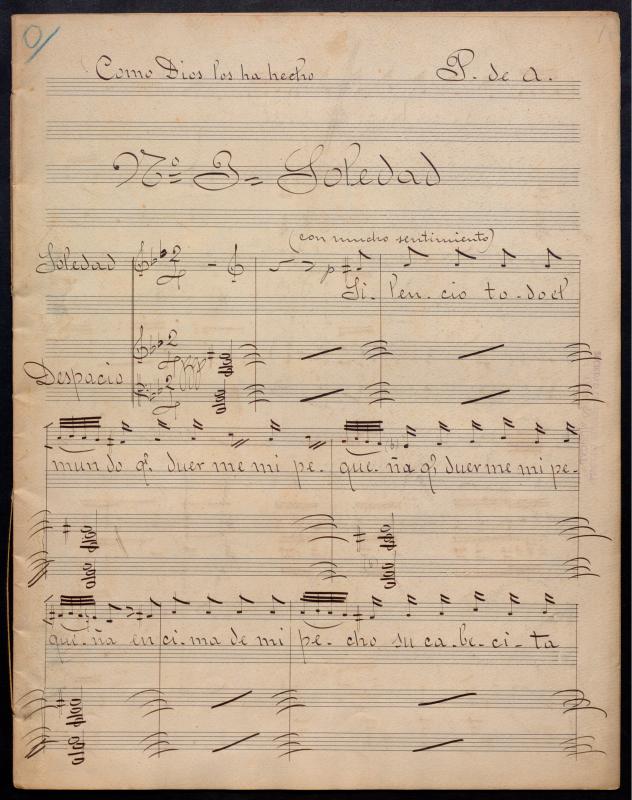 Como Dios los ha hecho P. de A.
Nº 3 = Soledad
(con mucho sentimiento)
Soledad
p
Si- len- cio to- do el
Despacio
mun do qᵉ duer me mi pe- que- ña qᵉ duer me mi pe-
que- ña en ci- ma de mi pe- cho su ca- be- ci- ta